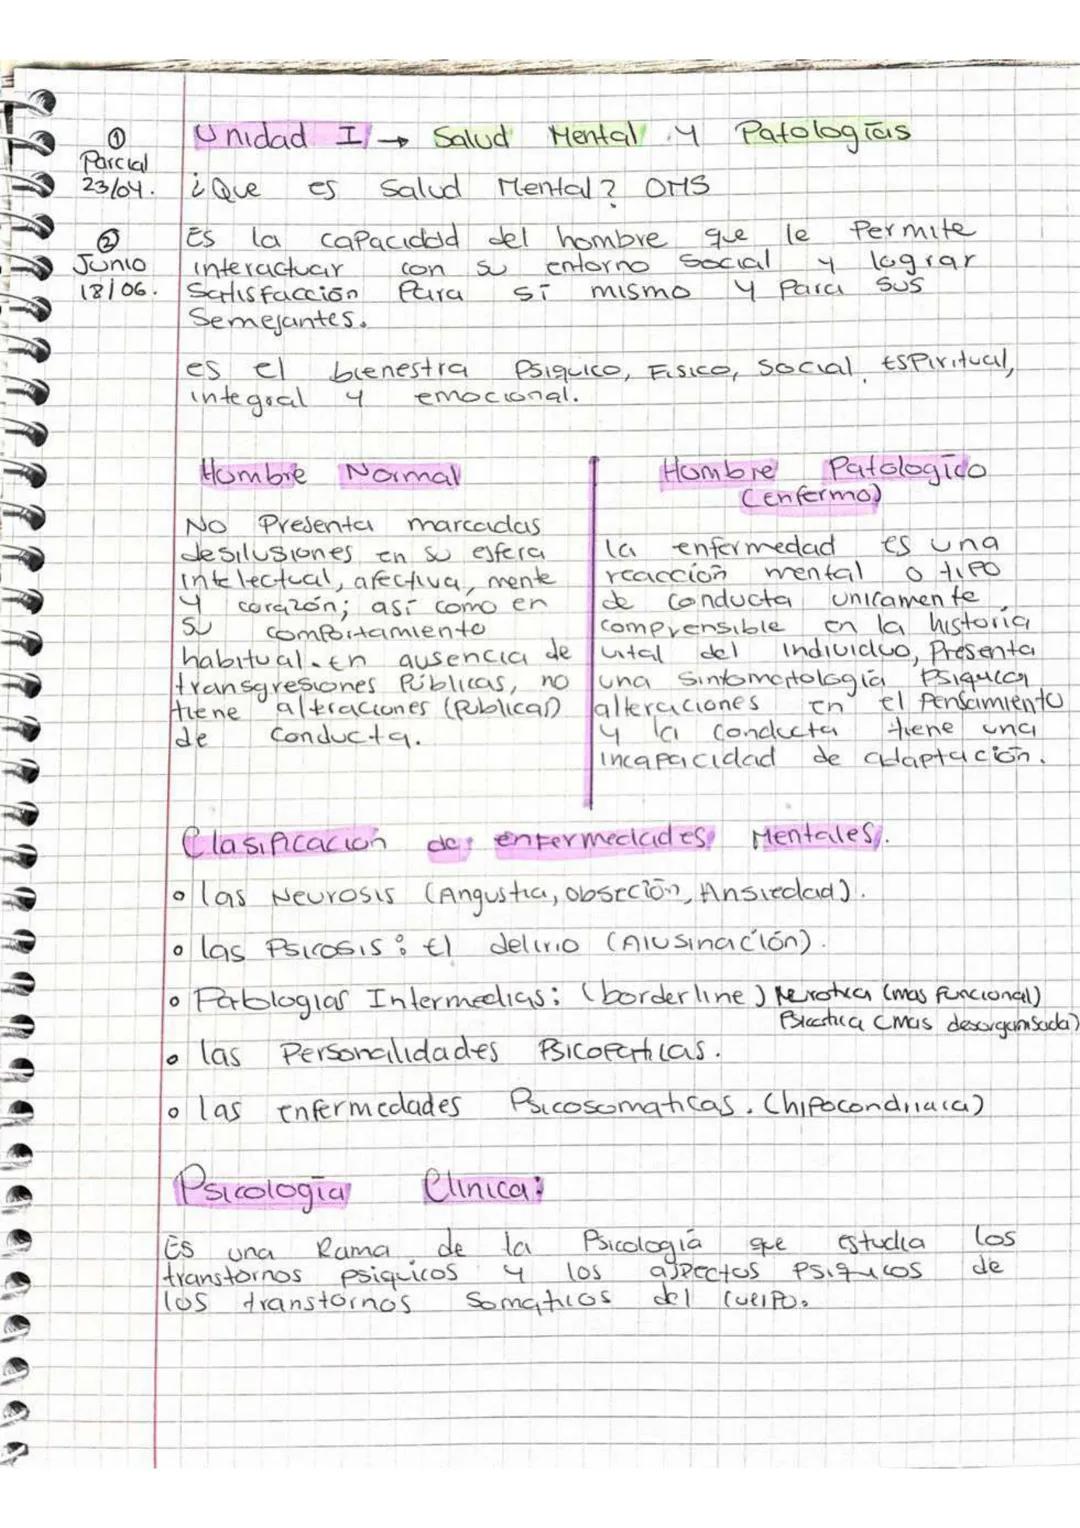 ① Parcial 23/04.
② Junio 18/06.
Unidad I → Salud Mental y Patologías
¿Que es Salud Mental? OMS
Es la capacidad del hombre que le Permite
interactuar con su entorno Social y lograr
Satisfacción Para sí mismo y Para sus
Semejantes.
es el bienestra Psiquico, Fisico, Social, Espiritual,
integral y emocional.
Hombre Normal
No Presenta marcadas
desilusiones en su esfera
intelectual, afectiva, mente
y corazón; así como en
su comportamiento
habitual. En ausencia de
transgresiones Públicas, no
tiene altraciones (Publicas)
de conducta.
Hombre Patologíco
(enfermo)
la enfermedad es una
reacción mental o tipo
de conducta unicamente
comprensible en la historia
vital del individuo, Presenta
una Sintomatología Psiquica,
alteraciones en el Pensamiento
y la conducta tiene una
incapacidad de adaptación.
Clasificación de enfermedades Mentales.
• las Neurosis (Angustia, obseción, Ansiedad).
• las Psicosis: El delirio (Alusinación).
• Patologías Intermedias: (borderline) Nerotica (mas funcional)
Psicotica (mas desorganisada)
• las Personalidades Psicopaticas.
• las enfermedades Psicosomaticas. (hipocondriaca)
Psicología Clinica:
Es una Rama de la Psicología que estudia los
transtornos psiquicos y los aspectos psiquicos de
los transtornos Somaticos del cuerpo.